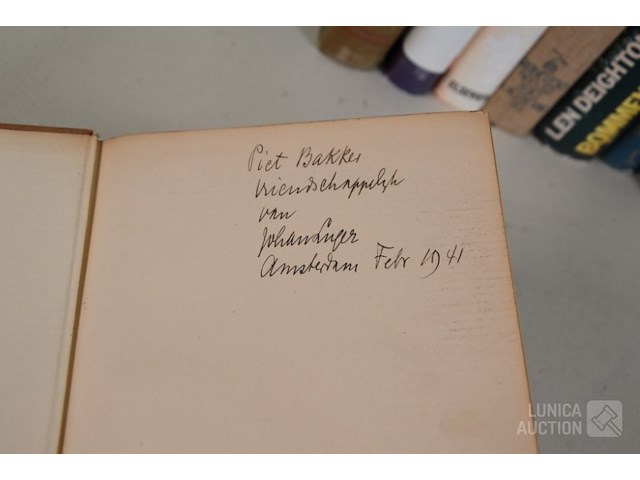 Piet Bakker
vriendschappelijk
van
Johan Luger
Amsterdam Febr 1941
ELSEVIER
LEN DEIGHTON
BOMMEN
LUNICA
AUCTION